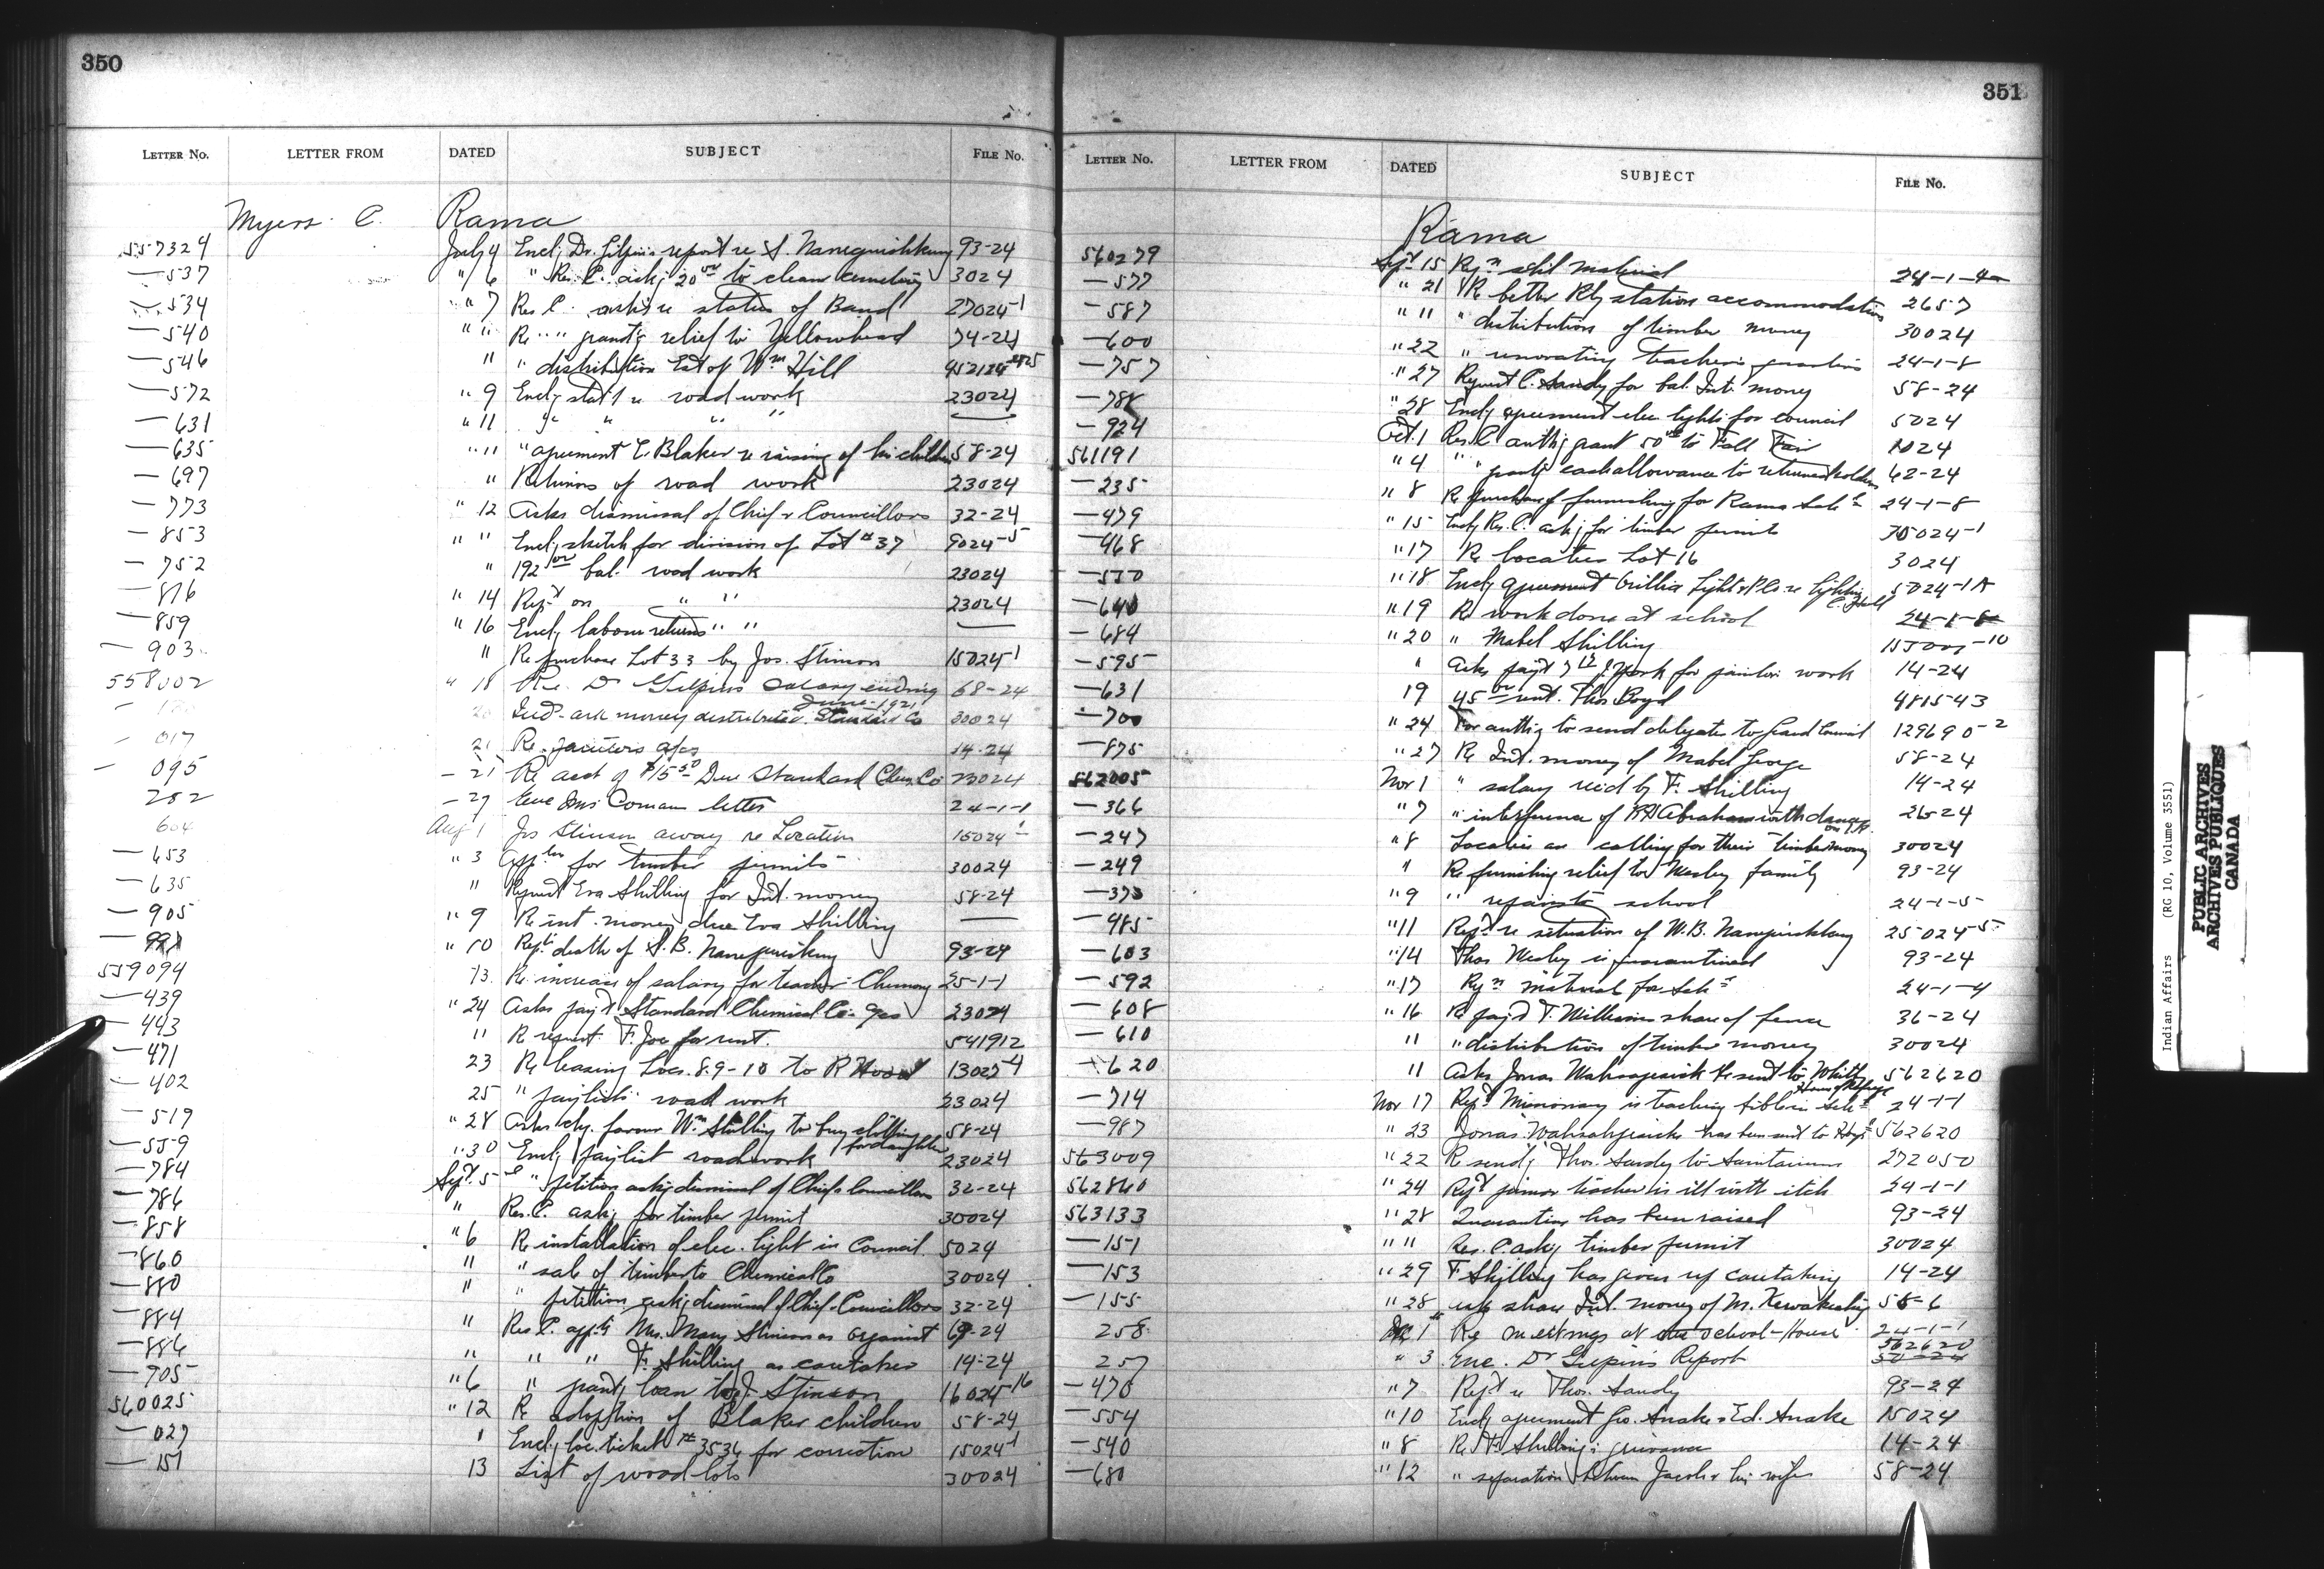 350
LETTER No. LETTER FROM DATED SUBJECT FILE No.
Myers C. Rama
557324 July 4 Encl'g Dr. Gilpin's report re S. 93-24
—537 " 6 " Res. C. ask'g 20 00 to clean cemetery 3024
—534 " 7 Res C. re status of Band 27024-1
—540 " " Re " " grant'g relief to Yellowhead 74-24
—546 " " distribution Est of Wm Hill
—572 " 9 Encl'g re road work 23024
—631 " 11 " " "
—635 " 11 " agreement E. Blaker re raising of his children 58-24
—697 " Returns of road work 23024
—773 " 12 Asks dismissal of Chief & Councillors 32-24
—853 " " Encl'g sketch for division of Lot # 37 9024-5
—752 " 192 bal. road work 23024
—816 " 14 Rep't on " " 23024
—859 " 16 Encl'g labour returns " "
—903 " Re purchase Lot 33 by Jos. Stinson 15024-1
558002 " 18 Re. Dr Gilpins salary ending June 1921 68-24
20 Ind. ask money distributed Standard Co 30024
—017 21 Re. janitors 14-24
—095 —21 Re acct of $15 50 Due Standard Chem. Co 23024
282 —27 letter 24-1-1
604 Aug 1 Jos Stinson away re Location 15024-1
—653 " 3 for timber permits 30024
—635 " Request Eva Shilling for Int. money 58-24
—905 " 9 Re int. money due Eva Shilling —
" 10 Rep'ts death of S. B. 93-24
559094 13. Re increase of salary for teacher 25-1-1
—439 " 24 Asks pay't Standard Chemical Co. 23024
—443 " Re request F. Joe for rent. 541912
—471 23 Re leasing Locs. 8.9-10 to R 13025-4
—402 25 " paylists road work 23024
—519 " 28 Asks chq. favour Wm Shilling to buy clothing for daughter 58-24
—559 " 30 Encl'g paylist roadwork 23024
—784 Sept. 5 " petition ask'g dismissal of Chief & Councillors 32-24
—786 " Res. C. ask'g for timber permit 30024
—858 " 6 Re installation of elec. light in Council 5024
—860 " " sale of timber to Chemical Co 30024
—880 " " petition ask'g dismissal of Chief & Councillors 32-24
—884 " Res. C. app't'g Mrs. Mary Stinson as organist 69-24
—886 " " " F. Shilling as caretaker 14-24
—705 " 6 " grant'g loan to J. Stinson 16024-16
560025 " 12 Re adoption of Blaker children 58-24
—027 " Encl'g loc. ticket # 3536 for correction 15024-1
—151 13 List of wood lots 30024
351
LETTER No. LETTER FROM DATED SUBJECT FILE No.
Rama
560279 Sept 15 Reqn schl material 24-1-4
—577 " 21 Re better Rly station accommodation 2657
—587 " " " distribution of timber money 30024
—600 " 22 " renovating teacher's quarters 24-1-8
—757 " 27 Request C. Sandy for bal. Int. money 58-24
—788 " 28 Encl'g agreement elec lights for council 5024
—924 Oct. 1 Res. C auth'g grant 50 00 to Fall Fair 1024
561191 " 4 " " grant'g cash allowance to returned soldiers 62-24
—235 " 8 Re purchase of furnishing for Rama Schl 24-1-8
—479 " 15 Encl'g Res. C. ask'g for timber permits 30024-1
—468 " 17 Re location Lot 16 3024
—570 " 18 Encl'g agreement Orillia Light & P Co. re lighting C. Hall 5024-1A
—640 " 19 Re work done at school 24-1-8
—684 " 20 " Mabel Shilling
—595 " Asks pay't J. York for work 14-24
—631 19 45 00 rent. Thos. Boyd 481543
—700 " 24 For auth'y to send delegates to Grand Council 129690-2
—875 " 27 Re Int. money of Mabel George 58-24
562005 Nov 1 " salary rec'd by F. Shilling 14-24
—366 " 7 " interference of with dances 26-24
—247 " 8 Locatees are calling for their timber money 30024
—249 " Re furnishing relief to Wesley family 93-24
—373 " 9 " repairs to school 24-1-5
—485 " 11 Rep't re situation of W. B. 25024-5
—603 " 14 Thos Wesley is quarantined 93-24
—592 " 17 Reqn material for Schl 24-1-4
—608 " 16 Re pay't T. Williams share of fence 36-24
—610 " " distribution of timber money 30024
—620 " Asks Jonas be sent to Whitby House of Refuge 562620
—714 Nov 17 Rep'ts Missionary is teaching bible in Schl 24-1-1
—987 " 23 Jonas has been sent to Hosp'l 562620
563009 " 22 Re send'g Thos. Sandy to Sanitarium 272050
562860 " 24 Rep't junior teacher is ill with itch 24-1-1
563133 " 28 Quarantine has been raised 93-24
—151 " " Res. C. ask'g timber permit 30024
—153 " 29 F Shilling has given up caretaking 14-24
—155 " 28 asks share Int. money of M. 58-6
258 Dec 1 Re meetings at the School-House 24-1-1
257 " 3 enc. Dr Gilpin's Report 562620
—470 " 7 Rep't re Thos. Sandy 93-24
—554 " 10 Encl'g agreement Geo. Snake & Ed. Snake 15024
—540 " 8 Re F. Shilling's grievance 14-24
—680 " 12 " separation between Jacobs & his wife 58-24
Indian Affairs (RG 10, Volume 3551)
PUBLIC ARCHIVES
ARCHIVES PUBLIQUES
CANADA